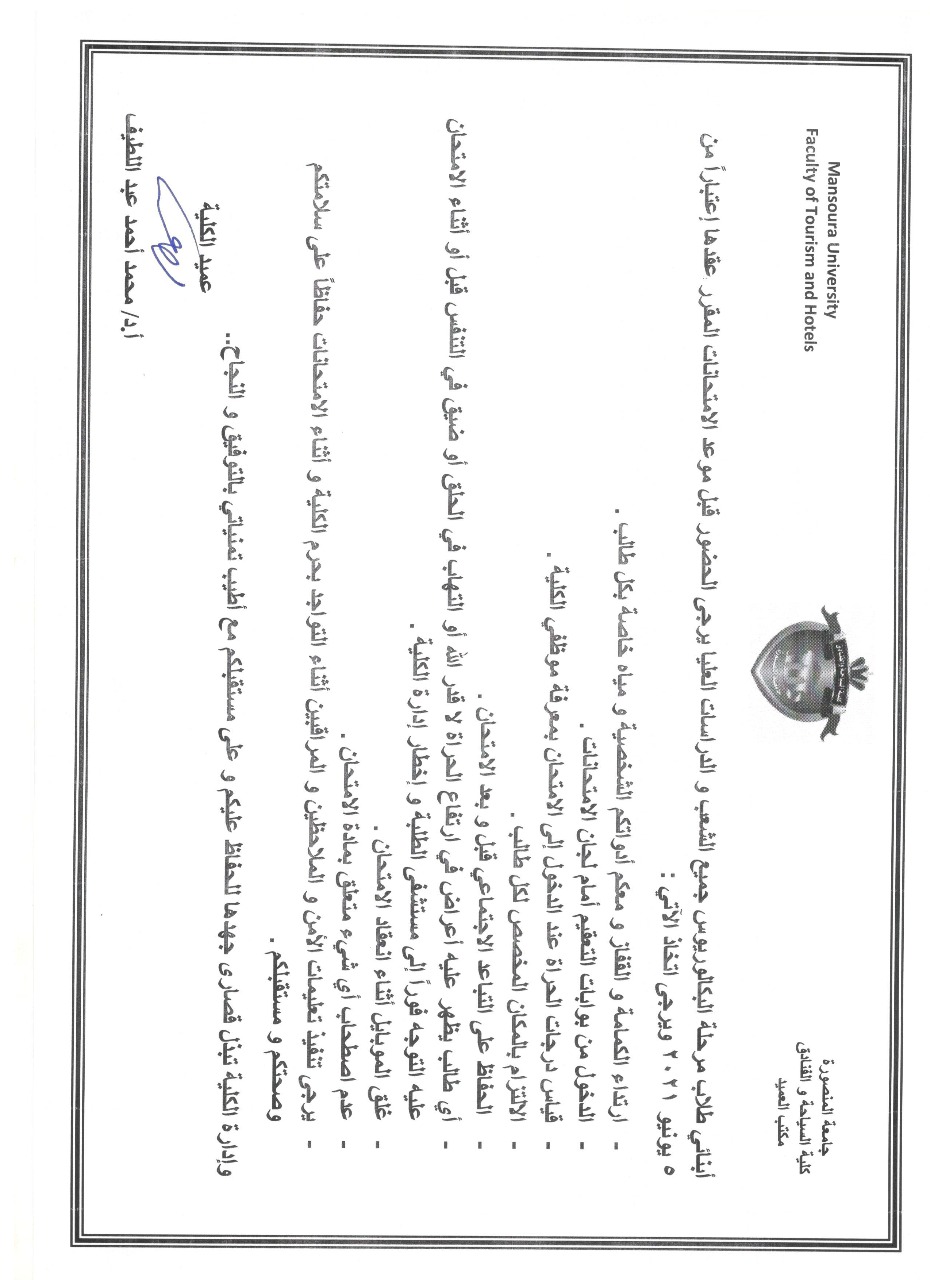 جامعة المنصورة
كلية السياحة و الفنادق
مكتب العميد
Mansoura University
Faculty of Tourism and Hotels
أبنائي طلاب مرحلة البكالوريوس جميع الشعب و الدراسات العليا يرجى الحضور قبل موعد الامتحانات المقرر عقدها إعتباراً من
٥ يونيو ٢٠٢١ ويرجى اتخاذ الآتي :
- ارتداء الكمامة و القفاز و معكم أدواتكم الشخصية و مياه خاصة بكل طالب .
- الدخول من بوابات التعقيم أمام لجان الامتحانات .
- قياس درجات الحراة عند الدخول إلى الامتحان بمعرفة موظفي الكلية .
- الالتزام بالمكان المخصص لكل طالب .
- الحفاظ على التباعد الاجتماعي قبل و بعد الامتحان .
- أي طالب يظهر عليه أعراض في ارتفاع الحراة لا قدر الله أو التهاب في الحلق أو ضيق في التنفس قبل أو أثناء الامتحان
عليه التوجه فوراً إلى مستشفى الطلبة و إخطار إدارة الكلية .
- غلق الموبايل أثناء انعقاد الامتحان .
- عدم اصطحاب أي شيء متعلق بمادة الامتحان .
- يرجى تنفيذ تعليمات الأمن و الملاحظين و المراقبين أثناء التواجد بحرم الكلية و أثناء الامتحانات حفاظاً على سلامتكم
وصحتكم و مستقبلكم .
وإدارة الكلية تبذل قصارى جهدها للحفاظ عليكم و على مستقبلكم مع أطيب تمنياتي بالتوفيق و النجاح..
عميد الكلية
أ.د/ محمد أحمد عبد اللطيف